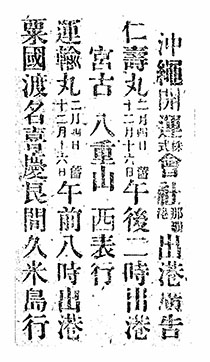 沖繩開運株式會社那覇出港廣告
仁壽丸二月四日十二月十六日午後二時出港
宮古 八重山 西表行
運輸丸二月四日十二月十六日午前八時出港
粟國渡名喜慶良間久米島行